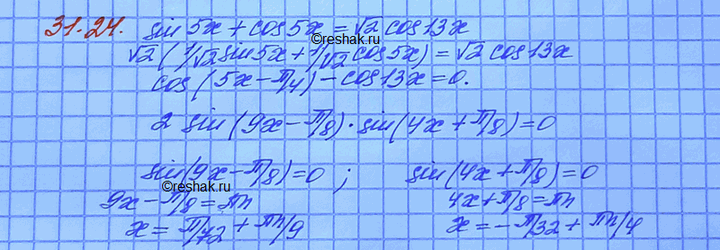 31.24. sin 5x + cos 5x = √2 cos 13x
©reshak.ru
√2 (1/√2 sin 5x + 1/√2 cos 5x) = √2 cos 13x
cos (5x - π/4) - cos 13x = 0.
2 sin (9x - π/8) · sin (4x + π/8) = 0
sin (9x - π/8) = 0 ; sin (4x + π/8) = 0
©reshak.ru
9x - π/8 = πn 4x + π/8 = πn
x = π/72 + πn/9 x = - π/32 + πn/4